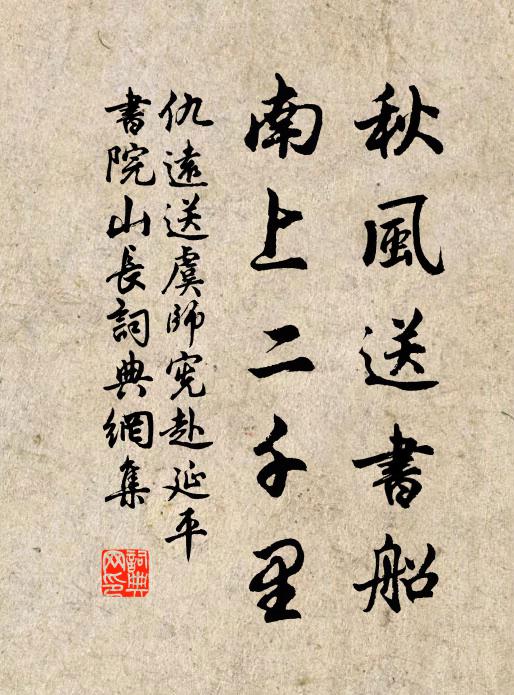 秋風送書船
南上二千里
仇遠送虞師憲赴延平
書院山長詞典網集
詞典网印